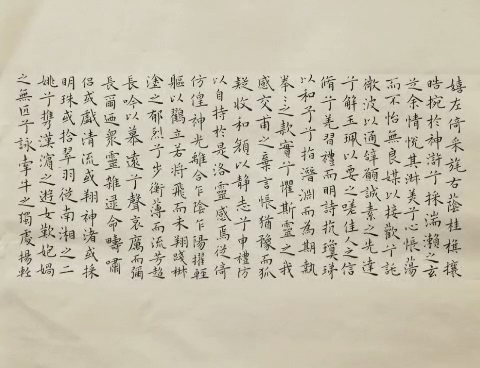 嬉左倚采旄右蔭桂旗攘
皓腕於神滸兮採湍瀨之玄
芝余情悅其淑美兮心悵蕩
而不怡無良媒以接歡兮託
微波以通辭願誠素之先達
兮解玉珮以要之嗟佳人之信
脩兮羌習禮而明詩抗瓊珶
以和予兮指潛淵而為期執
拳之款實兮懼斯靈之我
感交甫之棄言悵猶豫而狐
疑收和顏以静志兮申禮防
以自持於是洛靈感焉徙倚
仿偟神光離合乍陰乍陽擢輕
軀以鸖立若將飛而未翔踐椒
塗之郁烈兮步衡薄而流芳超
長吟以慕遠兮聲哀厲而彌
長爾迺衆靈雜遝命疇嘯
侶或戲清流或翔神渚或採
明珠或拾翠羽從南湘之二
姚兮攜漢濱之遊女歎匏媧
之無匹兮詠牽牛之獨處揚輕